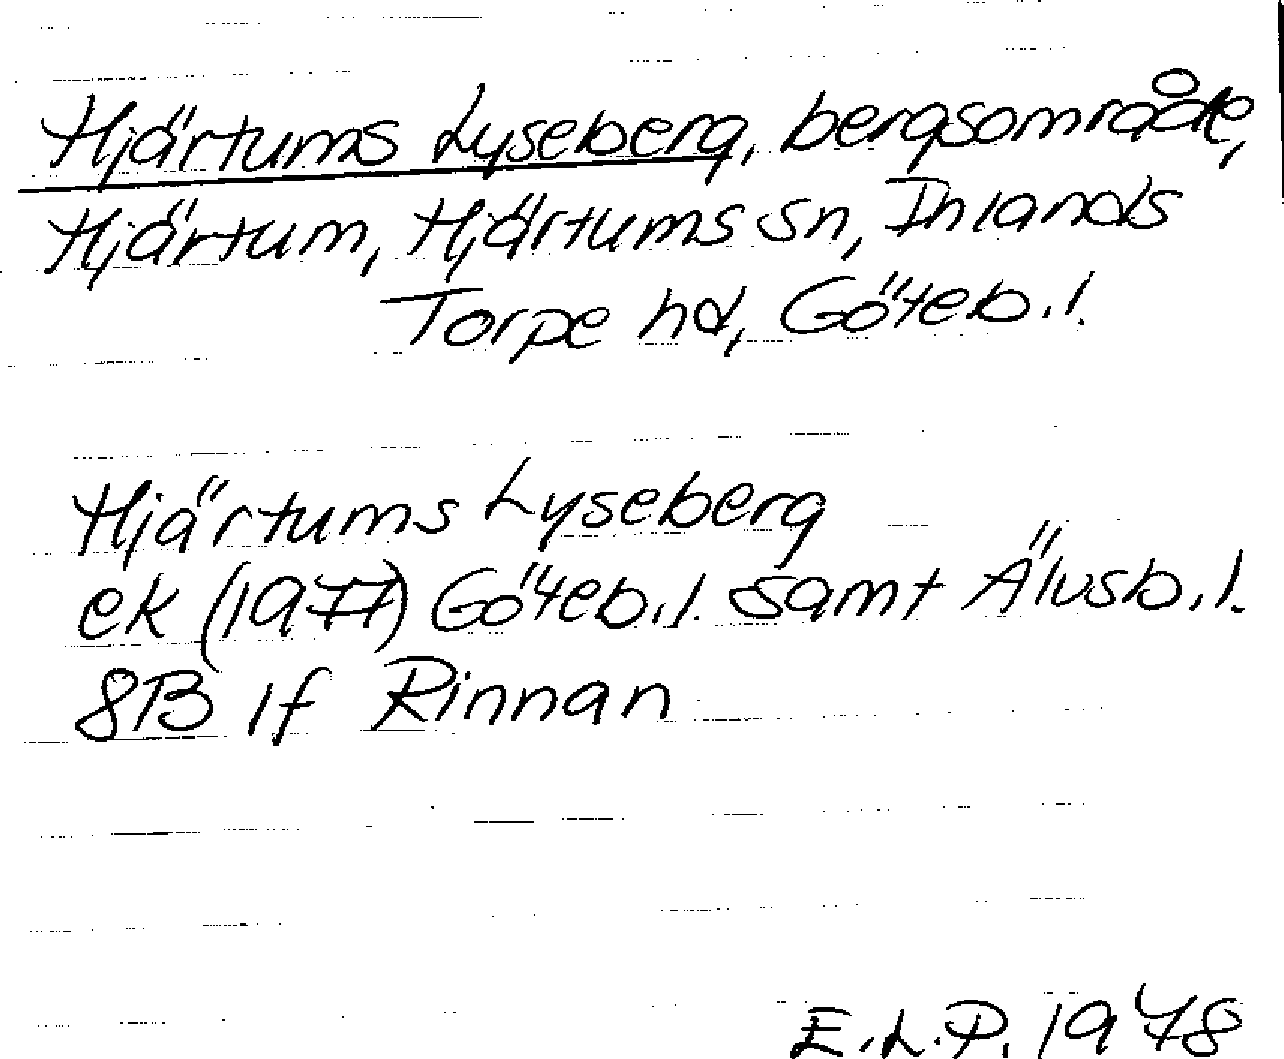 Hjärtums Lyseberg, bergsområde,
Hjärtum, Hjärtums sn, Inlands
Torpe hd, Göteb.l.
Hjärtums Lyseberg
ek (1977) Göteb.l. samt Älvsb.l.
8B 1f Rinnan
E.L.P. 1978